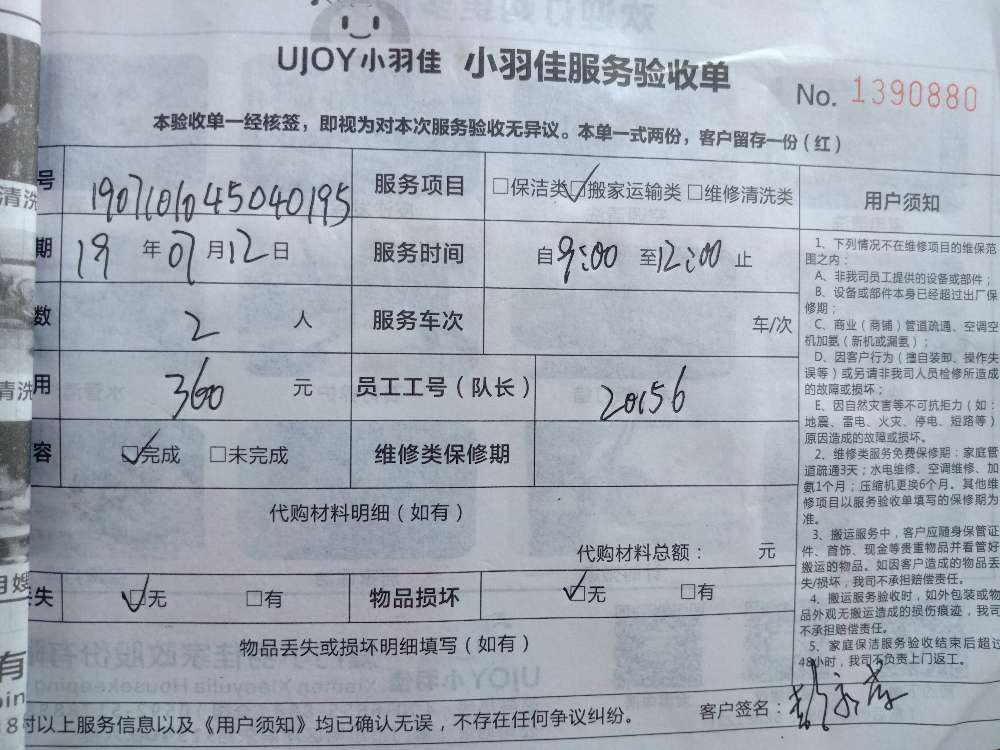 UJOY小羽佳 小羽佳服务验收单
No. 1390880
本验收单一经核签，即视为对本次服务验收无异议。本单一式两份，客户留存一份（红）
号 1907101045040195 服务项目 □保洁类 ☑搬家运输类 □维修清洗类 用户须知
期 19 年 07 月 12 日 服务时间 自 9:00 至 12:00 止
数 2 人 服务车次 车/次
用 360 元 员工工号（队长） 20156
容 ☑完成 □未完成 维修类保修期
代购材料明细（如有）
代购材料总额： 元
失 ☑无 □有 物品损坏 ☑无 □有
物品丢失或损坏明细填写（如有）
对以上服务信息以及《用户须知》均已确认无误，不存在任何争议纠纷。 客户签名：
1、下列情况不在维修项目的维保范
围之内：
A、非我司员工提供的设备或部件；
B、设备或部件本身已经超过出厂保
修期；
C、商业（商铺）管道疏通、空调空
机加氨（新机或漏氨）；
D、因客户行为（擅自装卸、操作失
误等）或另请非我司人员检修所造成
的故障或损坏；
E、因自然灾害等不可抗拒力（如：
地震、雷电、火灾、停电、短路等）
原因造成的故障或损坏。
2、维修类服务免费保修期：家庭管
道疏通3天；水电维修、空调维修、加
氨1个月；压缩机更换6个月。其他维
修项目以服务验收单填写的保修期为
准。
3、搬运服务中，客户应随身保管证
件、首饰、现金等贵重物品并看管好
搬运的物品。如因客户造成的物品丢
失/损坏，我司不承担赔偿责任。
4、搬运服务验收时，如外包装或物
品外观无搬运造成的损伤痕迹，我司
不承担赔偿责任。
5、家庭保洁服务验收结束后超过
48小时，我司不负责上门返工。
清洗
清洗
月嫂
有